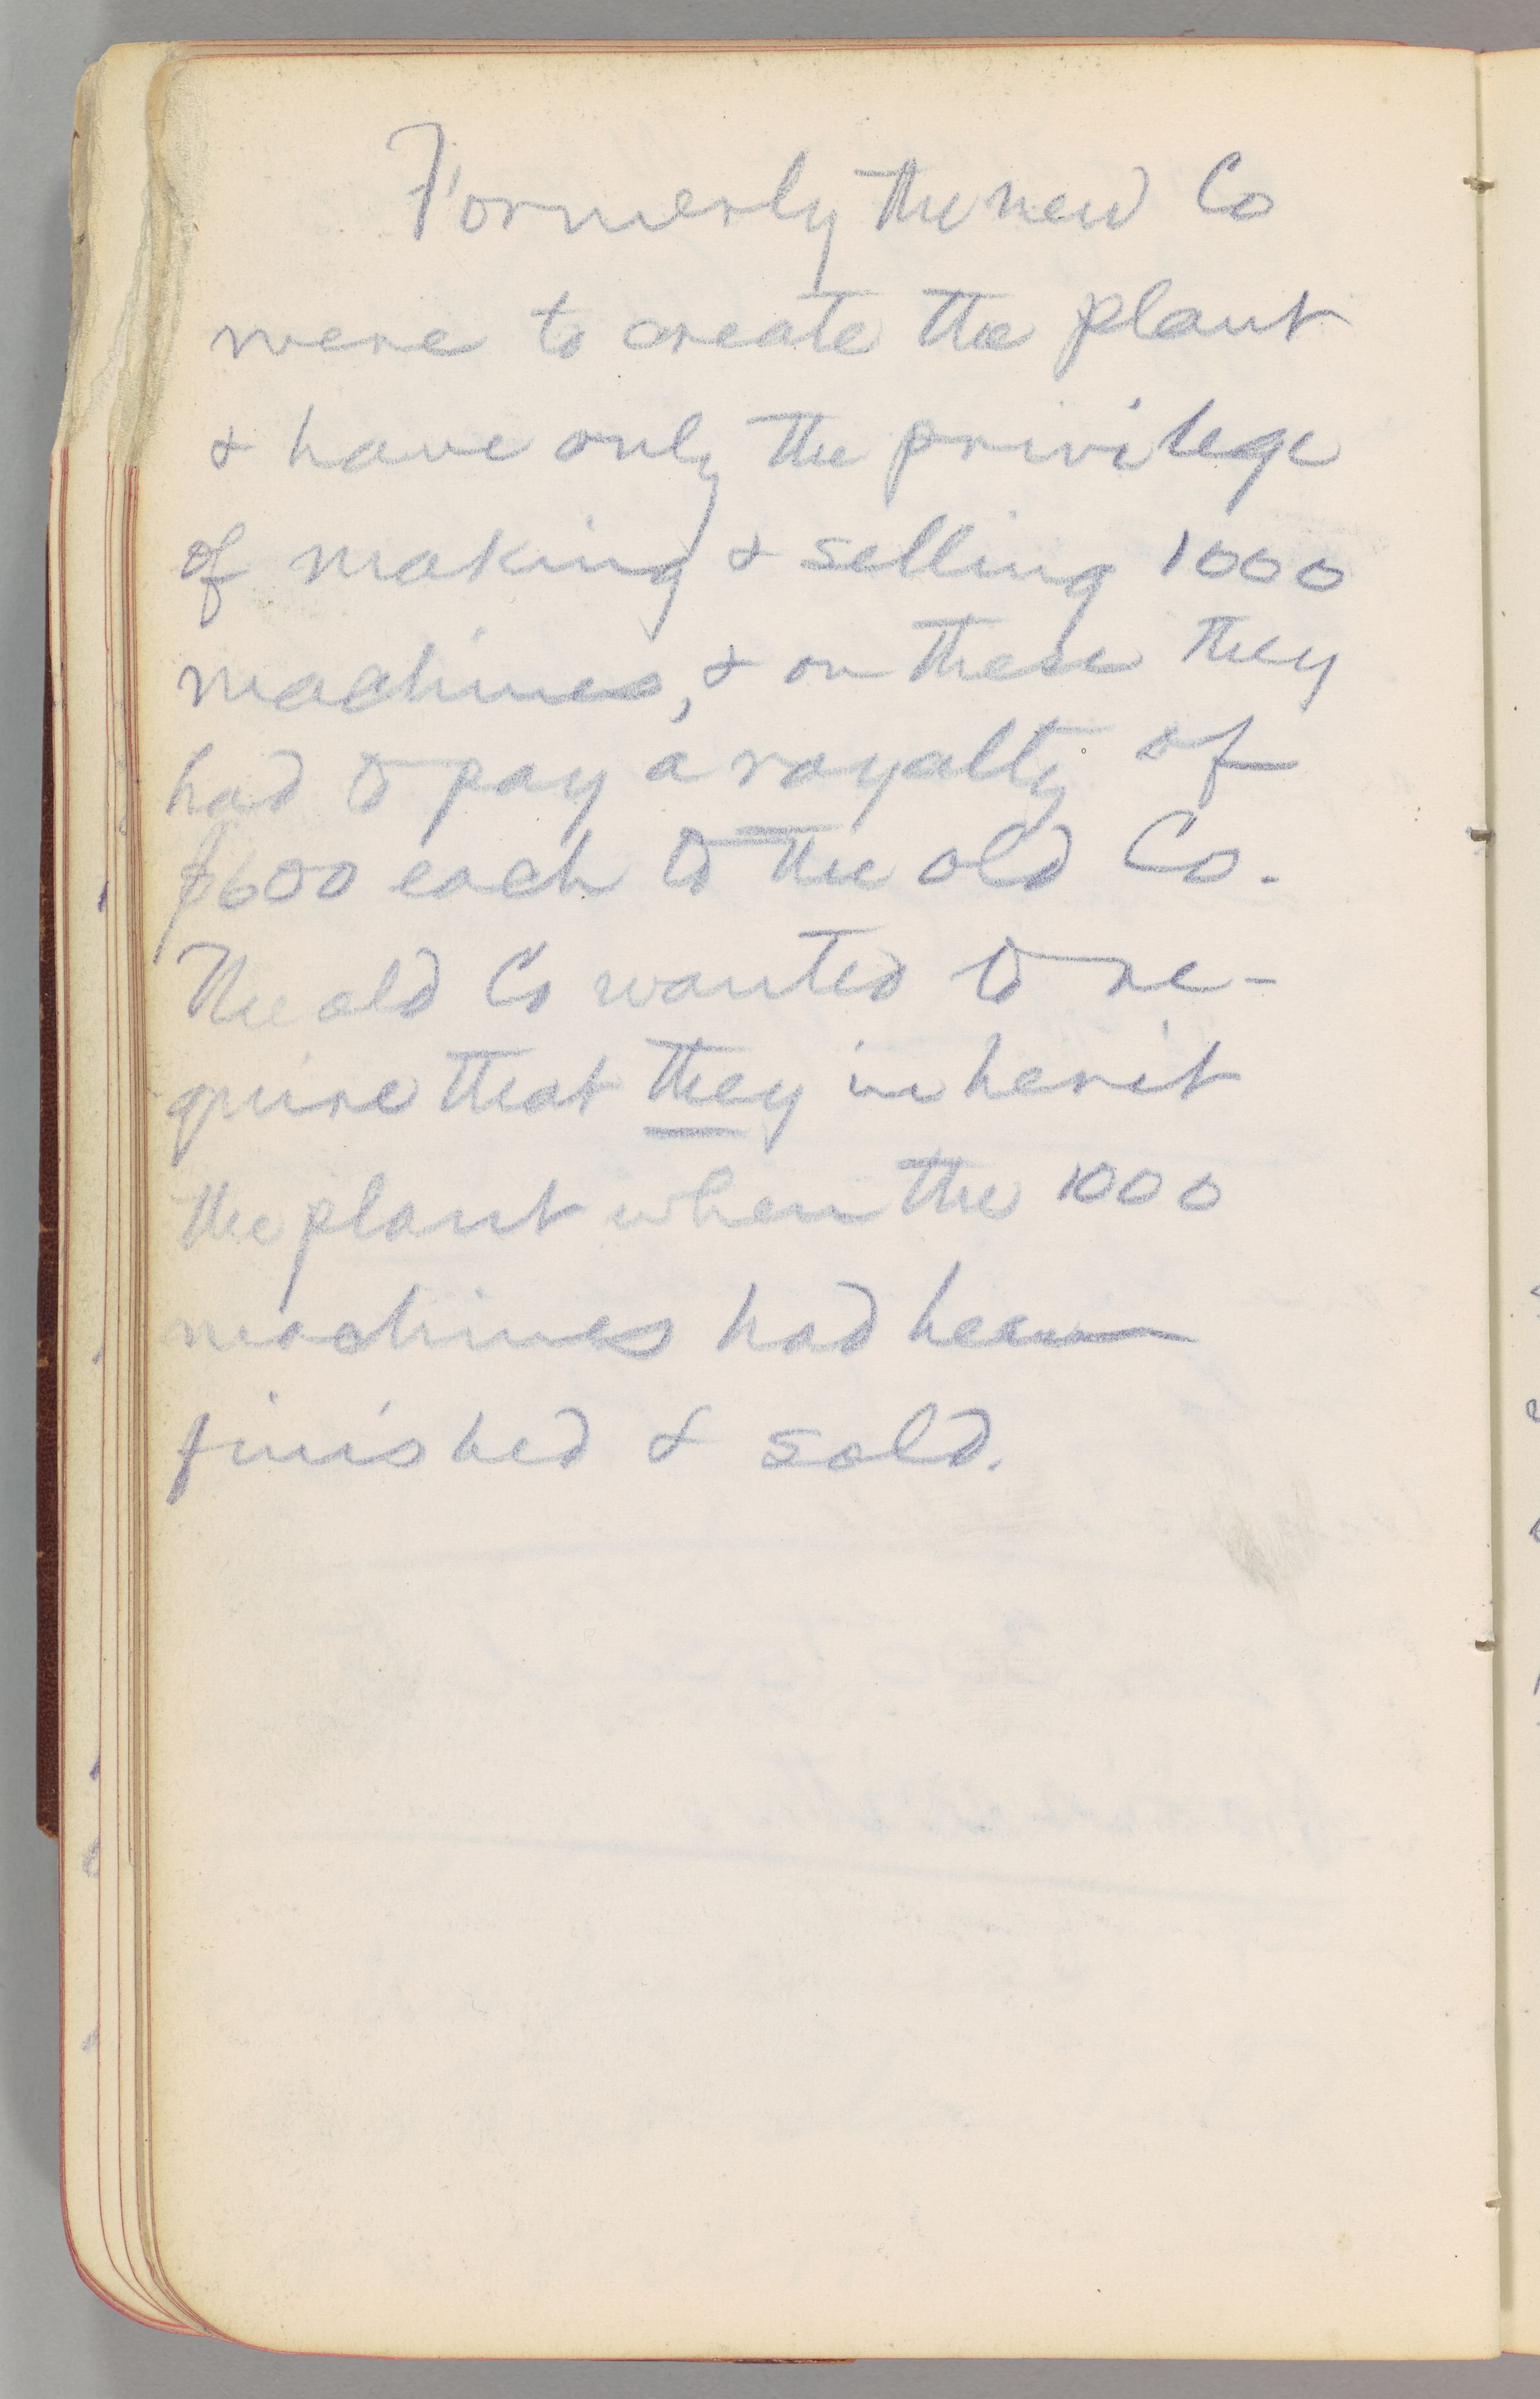 Formerly the new Co
were to create the plant
& have only the privilege
of making & selling 1000
machines, & on these they
had to pay a royalty of
$600 each to the old Co.
The old Co wanted to re-
quire that they inherit
the plant when the 1000
machines had been
finished & sold.